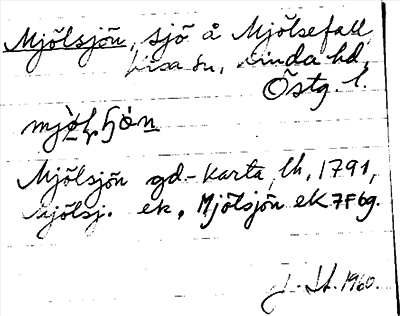 Mjölsjön, sjö å Mjölsefall,
Kisa sn, Kinda hd,
Östg. l.
Mjölsjön gd-karta, lh, 1791,
Mjölsj. ek, Mjölsjön eK 7F6g.
1960.